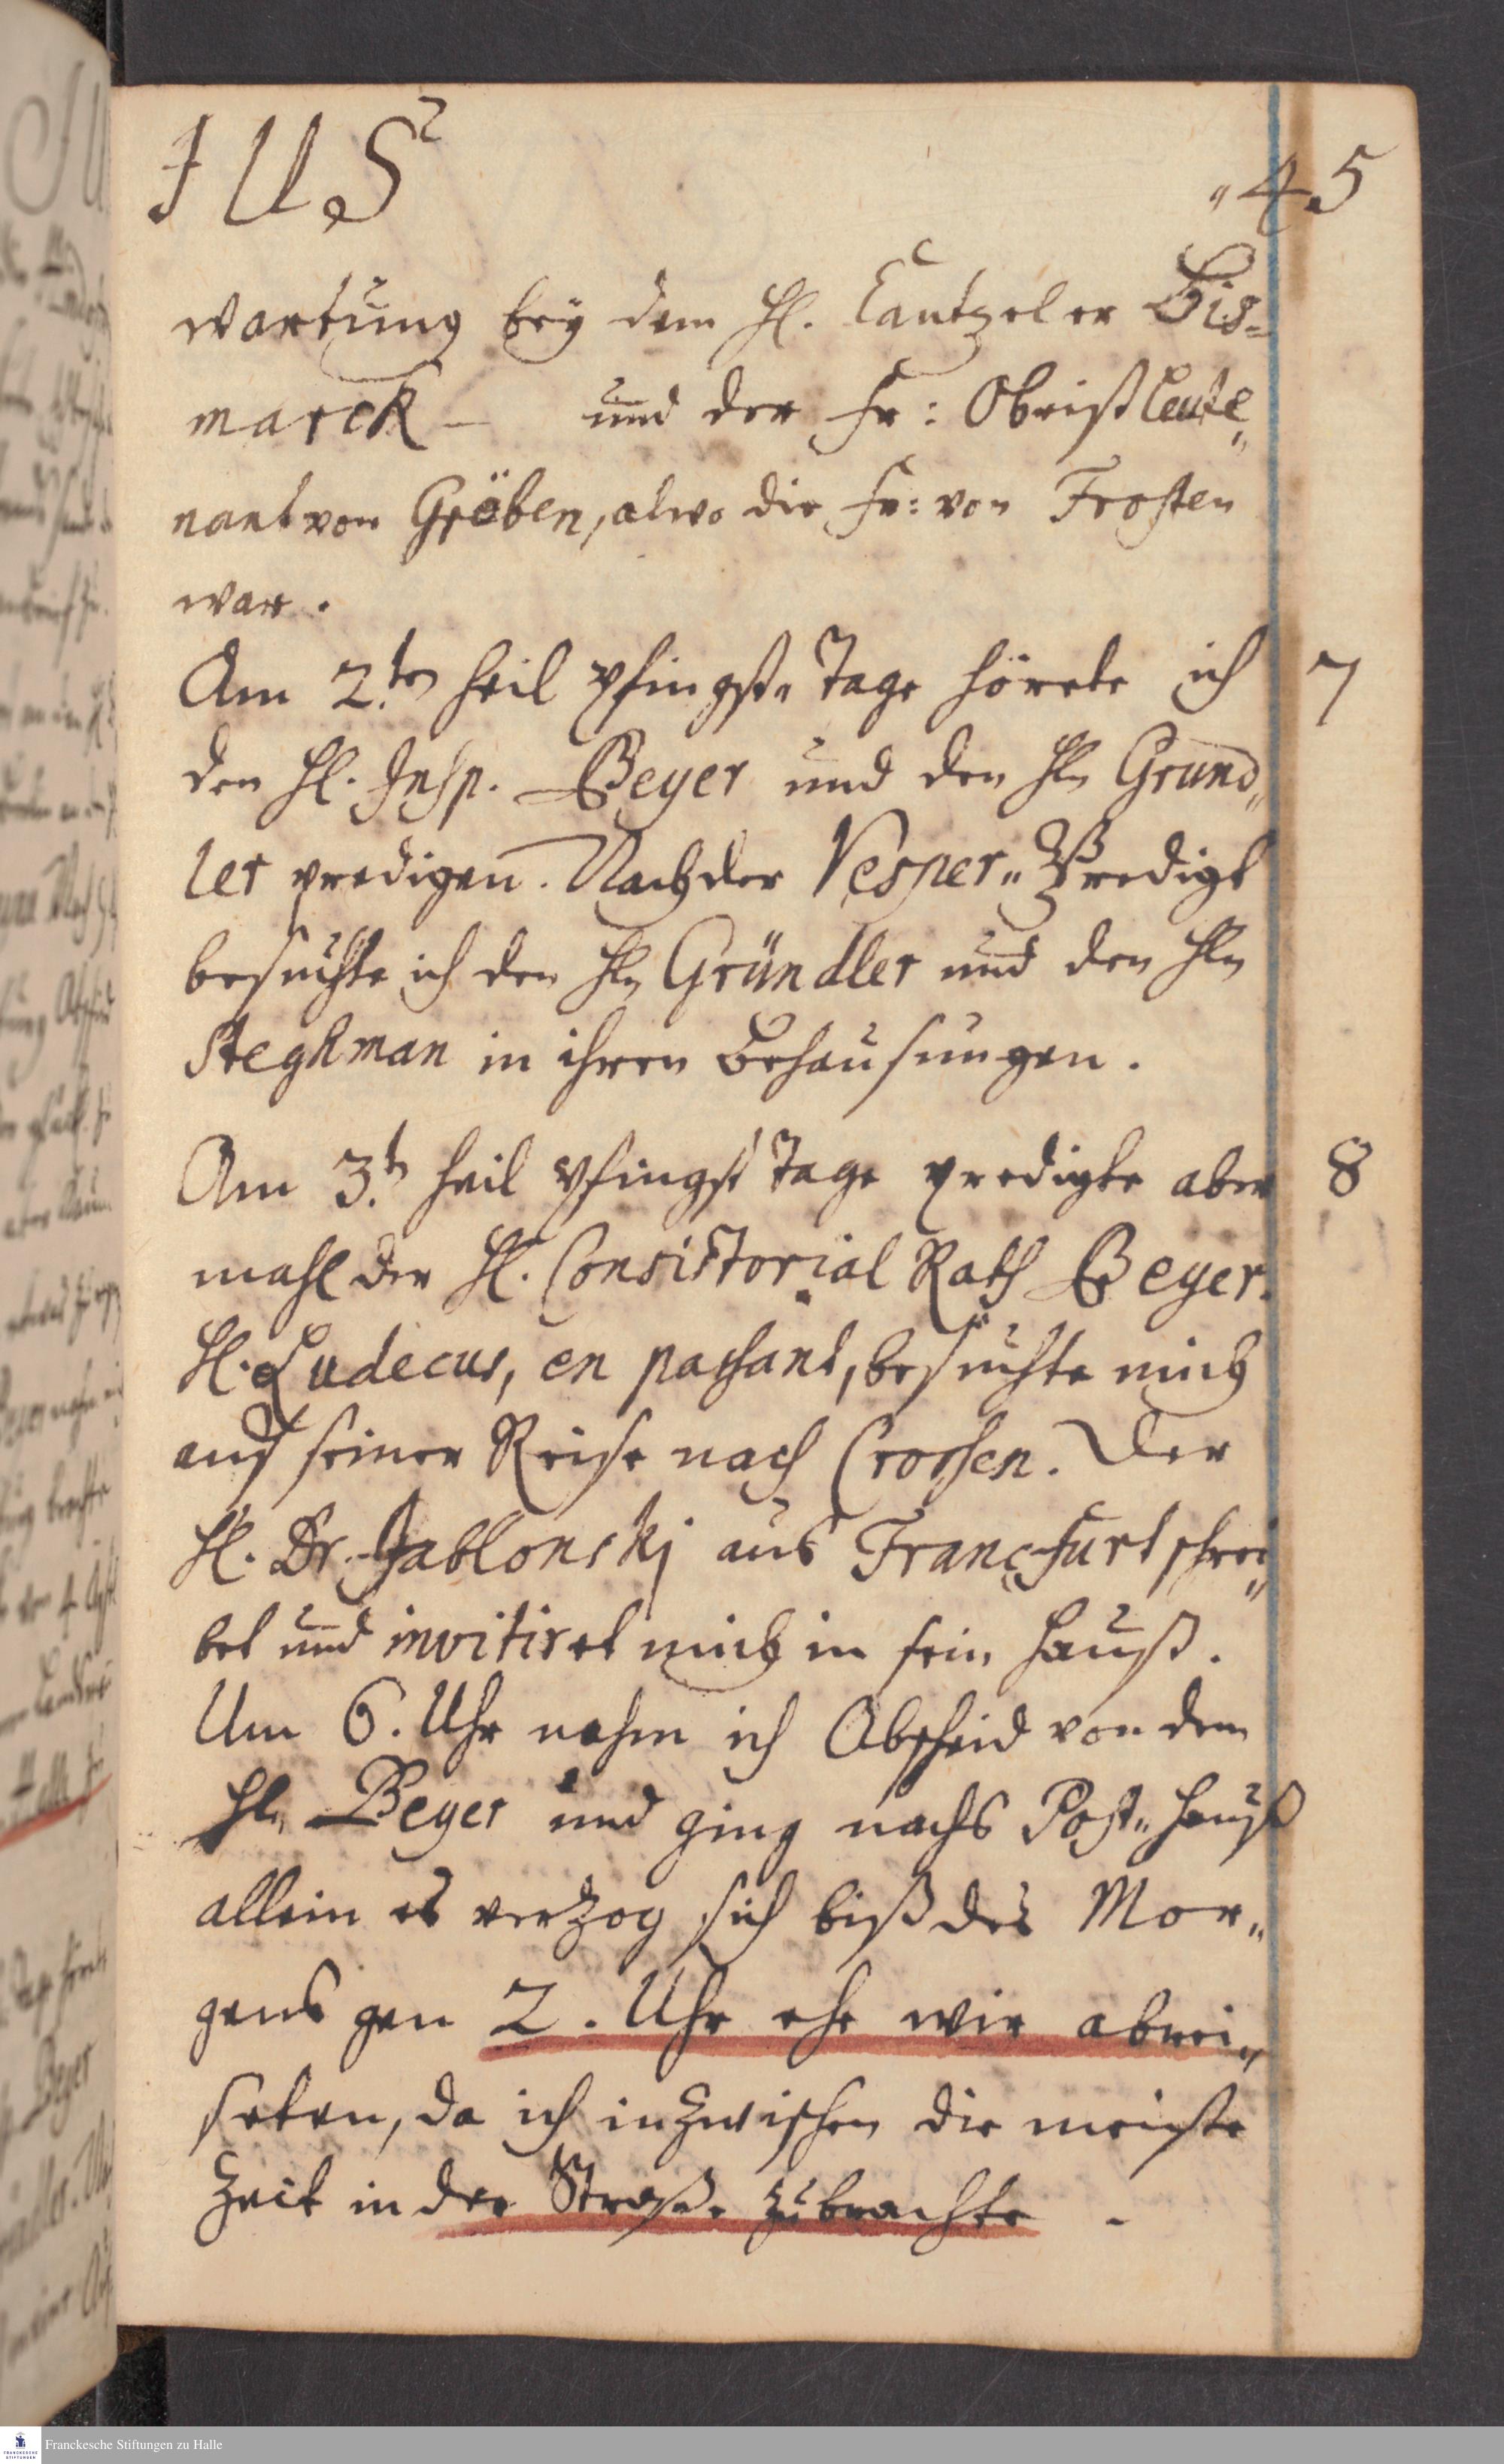 JUS
„45
wartung bey dem H. Cantzeler Bis=
marck – und der Fr: Obristleute„
nant von Gröben, alwo die Fr: von Frosten
war.
Am 2.ten heil Pfingst„ Tage hörete ich 7
den H. Insp. Beyer und den Hln Grund„
ler predigen. Nach der Vesper„ Predigt
besuchte ich den Hln Gründler und den Hln
Steghman in ihren Behausungen.
Am 3.t heil Pfingst Tage predigte aber 8
mahl der H. Consistorial Rath Beyer.
H. Ludecus, en passant, besuchte mich
auf seiner Reise nach Crossen. Der
H. Dr. Jablonski aus Francfurt schrei„
bet und invitiret mich in sein Hauß.
Um 6. Uhr nahm ich Abscheid von dem
Hln Beyer und ging nachs Post„ Hauß
allein es verzog sich biß des Mor„
gens gen 2. Uhr ehe wir abrei„
seten, da ich inzwischen die meiste
Zeit in der Straße zubrachte.
Franckesche Stiftungen zu Halle